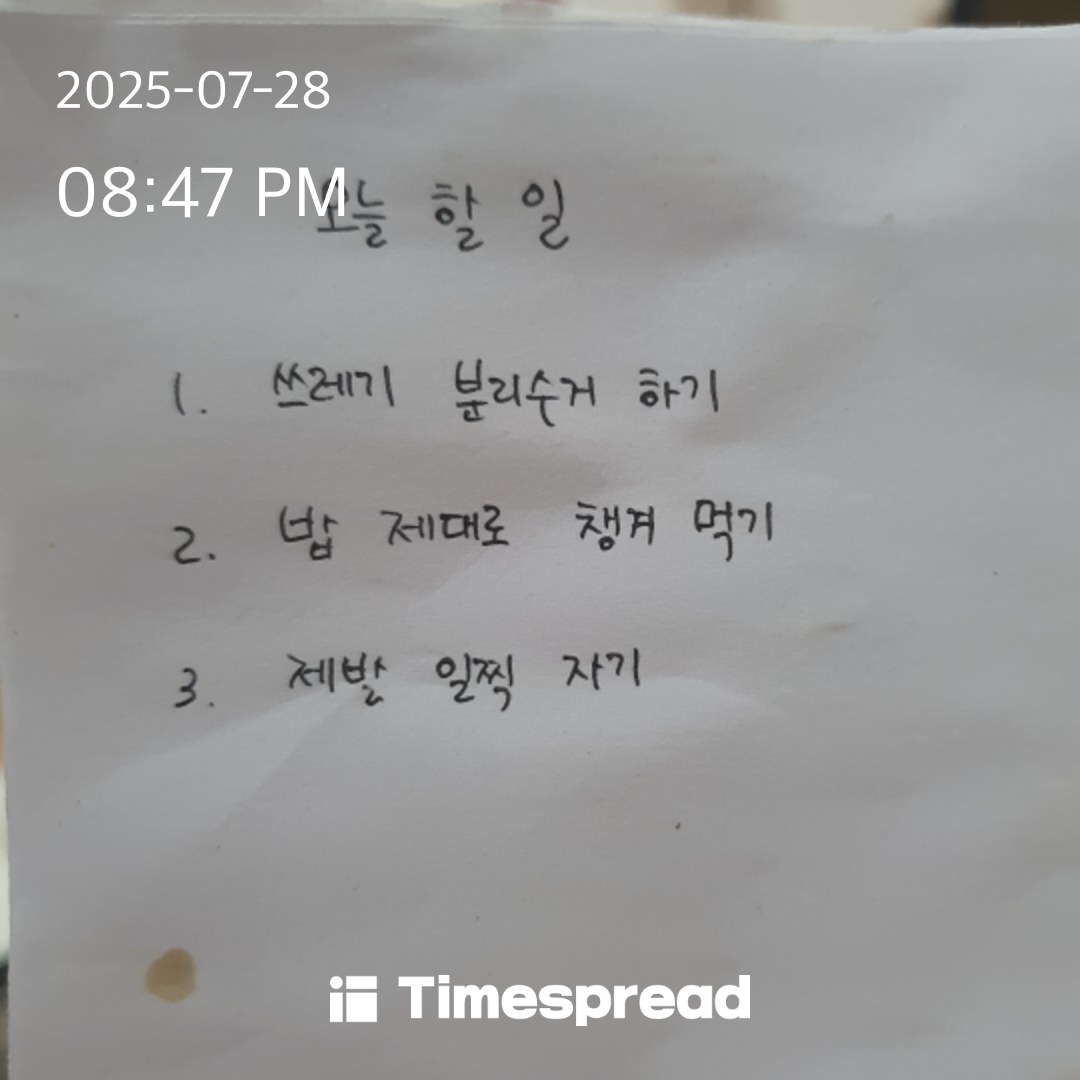 2025-07-28
08:47 PM
오늘 할 일
1. 쓰레기 분리수거 하기
2. 밥 제대로 챙겨 먹기
3. 제발 일찍 자기
Timespread